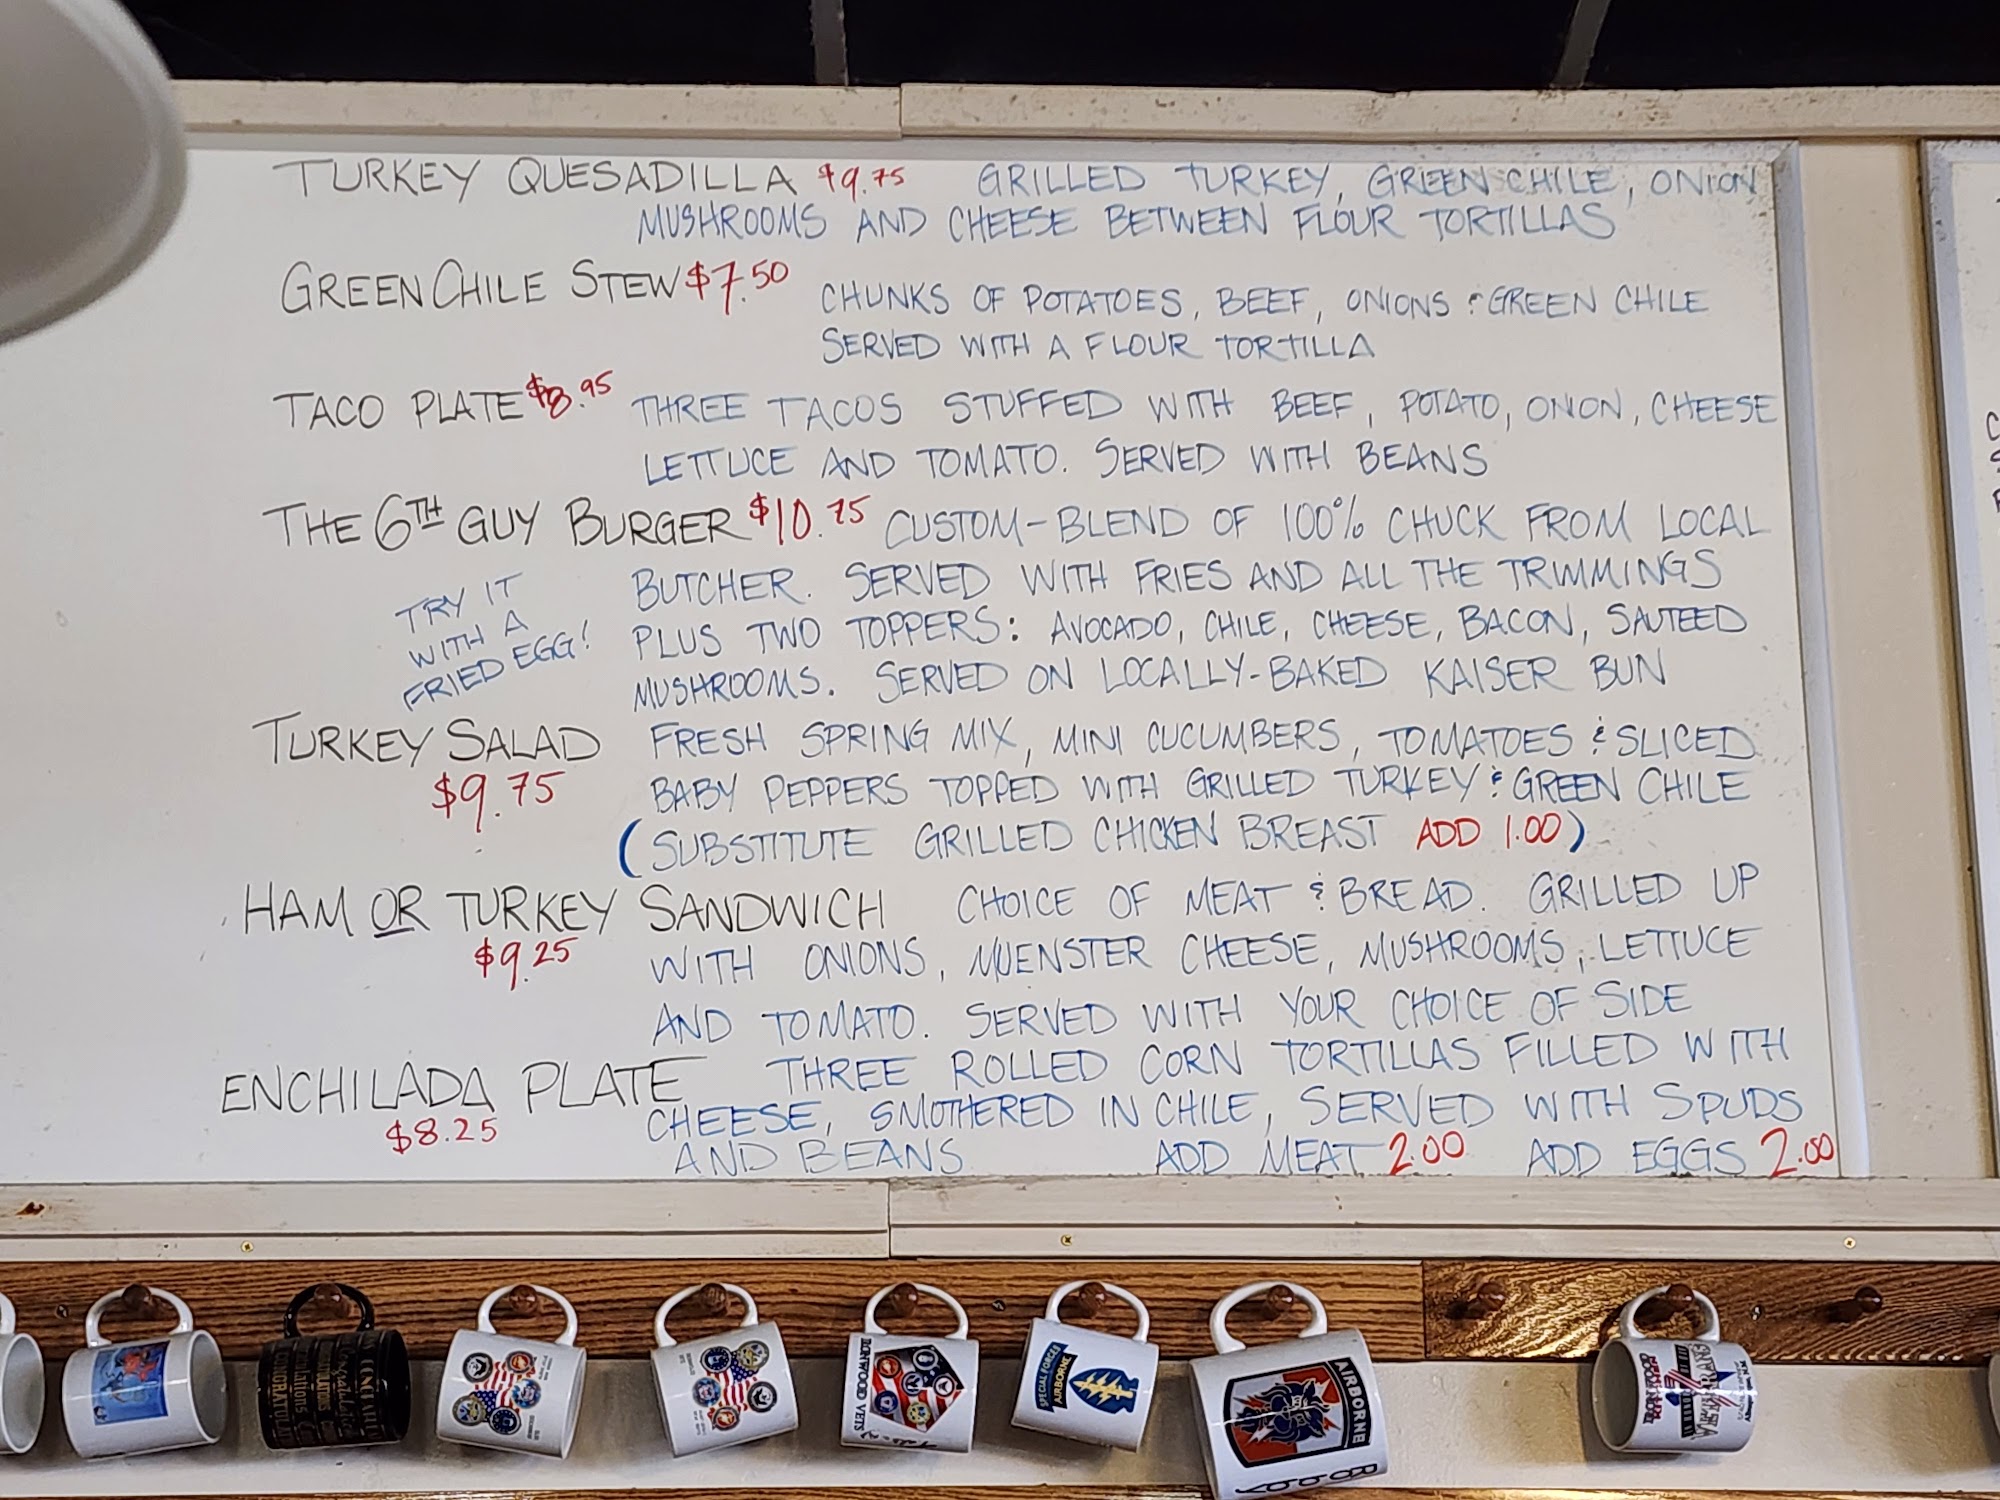 TURKEY QUESADILLA $9.75 GRILLED TURKEY, GREEN CHILE, ONION
MUSHROOMS AND CHEESE BETWEEN FLOUR TORTILLAS
GREEN CHILE STEW $7.50 CHUNKS OF POTATOES, BEEF, ONIONS & GREEN CHILE
SERVED WITH A FLOUR TORTILLA
TACO PLATE $8.95 THREE TACOS STUFFED WITH BEEF, POTATO, ONION, CHEESE
LETTUCE AND TOMATO. SERVED WITH BEANS
THE 6TH GUY BURGER $10.75 CUSTOM-BLEND OF 100% CHUCK FROM LOCAL
BUTCHER. SERVED WITH FRIES AND ALL THE TRIMMINGS
PLUS TWO TOPPERS: AVOCADO, CHILE, CHEESE, BACON, SAUTEED
MUSHROOMS. SERVED ON LOCALLY-BAKED KAISER BUN
TRY IT
WITH A
FRIED EGG!
TURKEY SALAD FRESH SPRING MIX, MINI CUCUMBERS, TOMATOES & SLICED
$9.75 BABY PEPPERS TOPPED WITH GRILLED TURKEY & GREEN CHILE
(SUBSTITUTE GRILLED CHICKEN BREAST ADD 1.00)
HAM OR TURKEY SANDWICH CHOICE OF MEAT & BREAD. GRILLED UP
$9.25 WITH ONIONS, MUENSTER CHEESE, MUSHROOMS, LETTUCE
AND TOMATO. SERVED WITH YOUR CHOICE OF SIDE
ENCHILADA PLATE THREE ROLLED CORN TORTILLAS FILLED WITH
$8.25 CHEESE, SMOTHERED IN CHILE, SERVED WITH SPUDS
AND BEANS ADD MEAT 2.00 ADD EGGS 2.00
SPECIAL FORCES
AIRBORNE
AIRBORNE
Bobby